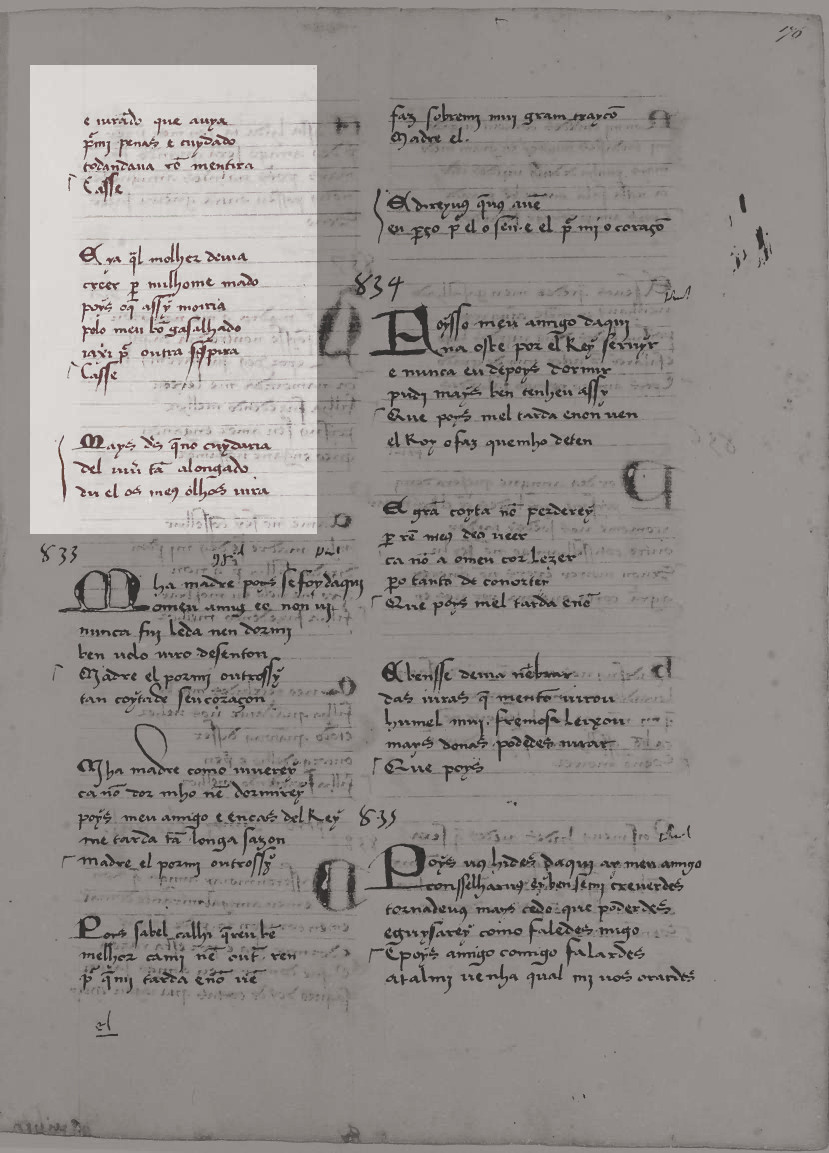 e iurãdo que auya
p̃mi penas e cuydado
todandaua cõ mentira
Casse
A ya q̃l molher deuia
creer per nulhome nado
poys oq̃ assy moiria
polo meu bõ gasalhado
iaxi p̃ outra sospira
Casse
Mays d's q̃no cuydaria
del uiu' tã alongado
du el os me9 olhos uira
833
Mha madre poys se foy daqui
omeu amig ec non ui
nunca fui leda nen dormi
ben uolo iuro desentou
Madre el pormi outrossy
tan coytade seu coraçon
Mha madre como uiuerey
ca nõ dor mho nẽ dormirey
poys meu amigo e encas del Rey
me tarda tã longa sazon
madre el pormi outrossy
Poys sabel calhi q̃reu bẽ
melhor cami nẽ out' ren
p̃ q̃mi tarda enõ uẽ
el
faz sobremi mui gram trayçõ
Madre el.
A direyu9 q̃u9 auẽ
eu perço p̃ el o sen e el p̃ mi o coraçõ
834
Foysso meu amigo daqui
na oste por el Rey seruyr
e nunca eu depoys dormir
pudi mays ben tenheu assy
Que poys mel tarda enon uen
el Rey o faz quemho deten
A grã coyta nõ perderey
per rẽ meos deo ueer
ca nõ a omeu cor lezer
pero tanto de conorter
Que poys mel tarda enõ
A bensse deuia nẽbrar
das iuras q̃ mento iurou
humel mui fremosa leixou
mays donas podedes iurar
Que poys
835
Poys u9 hides daqui ay meu amigo
conselharu9 ey ben semi creuerdes
tornadeu9 mays cedo que poderdes
eguysarey como faledes migo
E poys amigo comigo falardes
atalmi uenha qual mi uos oraides